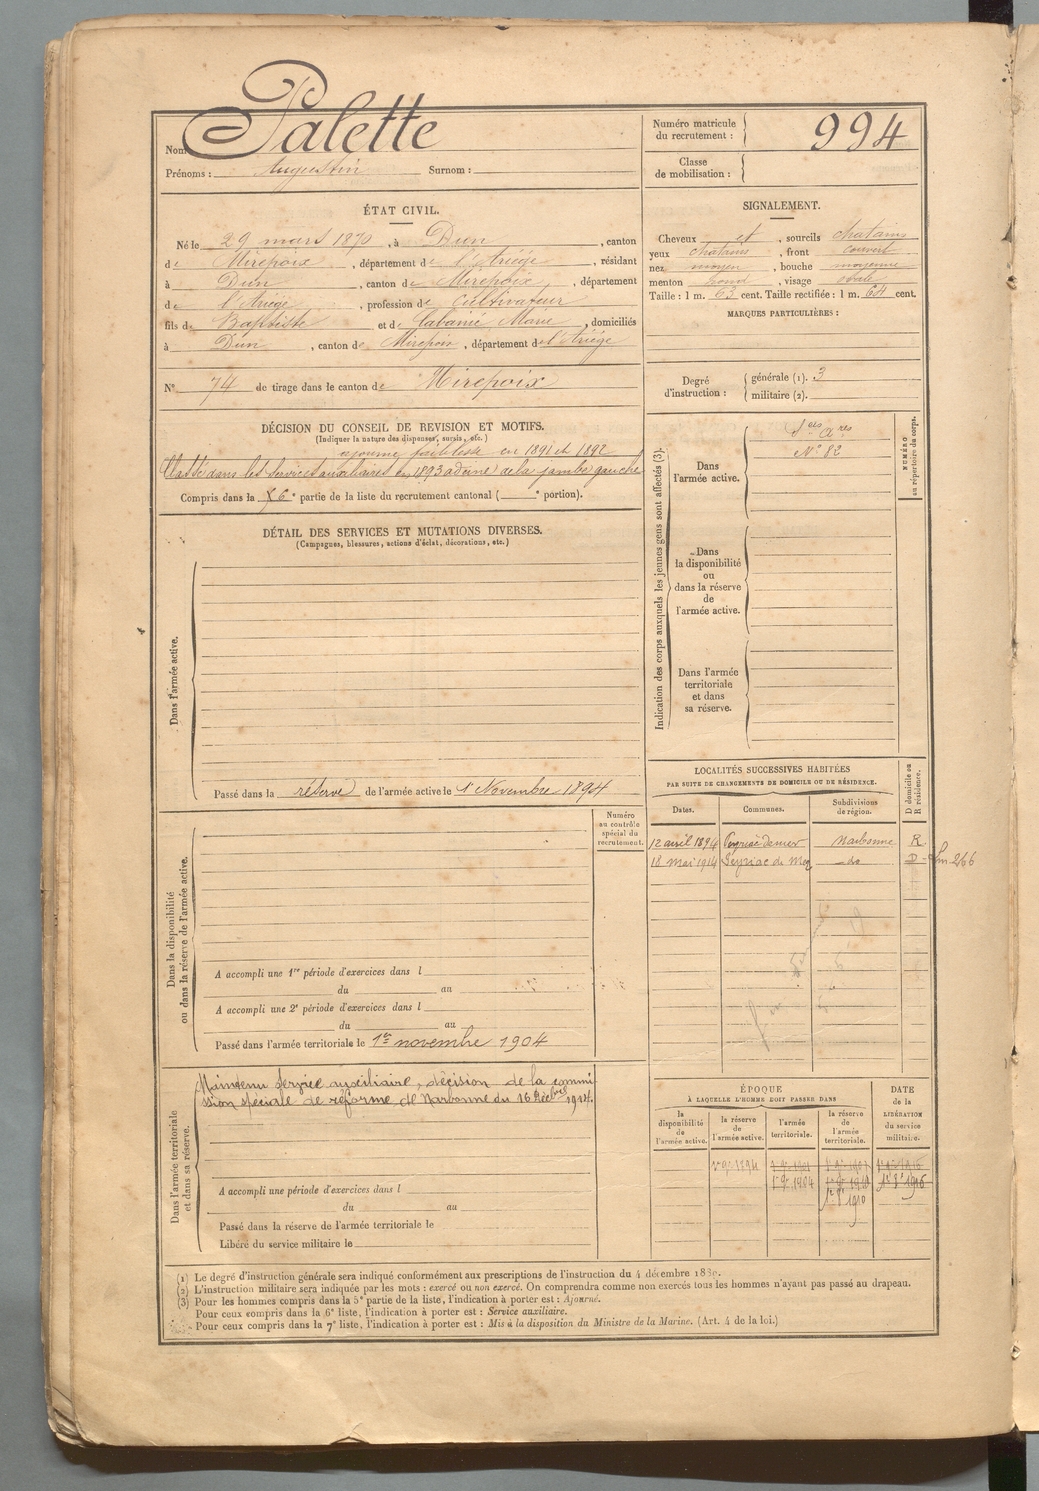 Nom Palette
Prénoms : Augustin Surnom :
Numéro matricule du recrutement : 994
Classe de mobilisation :
ÉTAT CIVIL.
Né le 29 mars 1870, à Dun, canton
de Mirepoix, département de l'Ariège, résidant
à Dun, canton de Mirepoix, département
de l'Ariège, profession de Cultivateur
fils de Baptiste et de Marie, domiciliés
à Dun, canton de Mirepoix, département de l'Ariège
N° 74 de tirage dans le canton de Mirepoix
SIGNALEMENT.
Cheveux et, sourcils chatains
yeux chatains, front couvert
nez moyen, bouche moyenne
menton rond, visage ovale
Taille : 1 m. 63 cent. Taille rectifiée : 1 m. 64 cent.
MARQUES PARTICULIÈRES :
Degré d'instruction : générale (1). 3
militaire (2).
DÉCISION DU CONSEIL DE REVISION ET MOTIFS.
(Indiquer la nature des dispenses, sursis, etc.)
ajourné faiblesse en 1891 et 1892
Classé dans les services auxiliaires en 1893 de la jambe gauche
Compris dans la 6e partie de la liste du recrutement cantonal ( e portion).
DÉTAIL DES SERVICES ET MUTATIONS DIVERSES.
(Campagnes, blessures, actions d'éclat, décorations, etc.)
Dans l'armée active.
Passé dans la réserve de l'armée active le 1er Novembre 1894
Indication des corps auxquels les jeunes gens sont affectés (3).
Dans l'armée active.
Sces Ares
N° 82
NUMÉRO au répertoire du corps.
Dans la disponibilité ou dans la réserve de l'armée active.
Dans l'armée territoriale et dans sa réserve.
LOCALITÉS SUCCESSIVES HABITÉES
PAR SUITE DE CHANGEMENTS DE DOMICILE OU DE RÉSIDENCE.
Dates. Communes. Subdivisions de région. D domicile ou R résidence.
12 avril 1894 Peyriac de mer Narbonne R
18 mai 1914 Peyriac de Mer do D
Numéro au contrôle spécial du recrutement.
Dans la disponibilité ou dans la réserve de l'armée active.
A accompli une 1re période d'exercices dans l
du au
A accompli une 2e période d'exercices dans l
du au
Passé dans l'armée territoriale le 1er novembre 1904
Dans l'armée territoriale et dans sa réserve.
Maintenu service auxiliaire, décision de la commi
ssion spéciale de réforme de Narbonne du 16 Décbre 1914.
A accompli une période d'exercices dans l
du au
Passé dans la réserve de l'armée territoriale le
Libéré du service militaire le
ÉPOQUE
À LAQUELLE L'HOMME DOIT PASSER DANS
la disponibilité de l'armée active. la réserve de l'armée active. l'armée territoriale. la réserve de l'armée territoriale.
DATE de la LIBÉRATION du service militaire.
1er 9bre 1894
1er 9bre 1904
1910
1916
(1) Le degré d'instruction générale sera indiqué conformément aux prescriptions de l'instruction du 4 décembre
(2) L'instruction militaire sera indiquée par les mots : exercé ou non exercé. On comprendra comme non exercés tous les hommes n'ayant pas passé au drapeau.
(3) Pour les hommes compris dans la 5e partie de la liste, l'indication à porter est : Ajourné.
Pour ceux compris dans la 6e liste, l'indication à porter est : Service auxiliaire.
Pour ceux compris dans la 7e liste, l'indication à porter est : Mis à la disposition du Ministre de la Marine. (Art. 4 de la loi.)